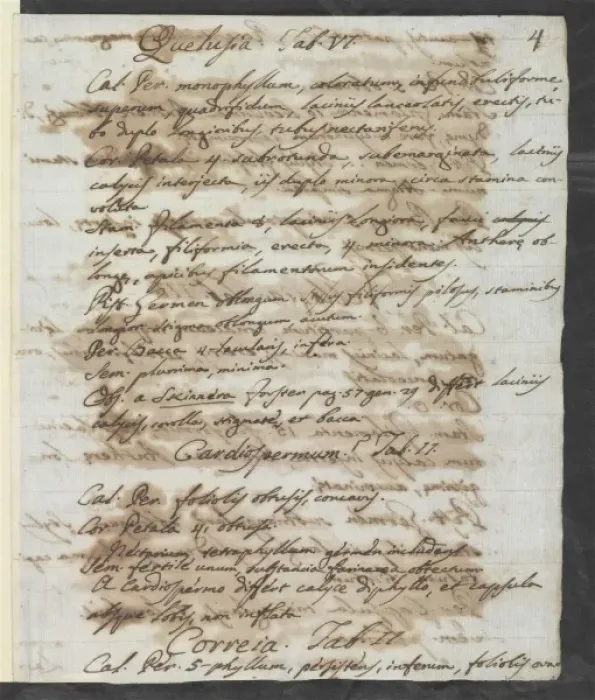 4
Quelusia. Tab. VI.
Cal. Per. monophyllum, coloratum, infundibuliforme,
superum, quadrifidum, laciniis lanceolatis, erectis, tu-
bo duplo longioribus, tubus nectariferus.
Cor. Petala 4. subrotunda, subemarginata, laciniis
calycis interjecta, iis duplo minora, circa stamina con-
voluta
Stam. Filamenta 8, laciniis longiora, fauci calycis
inserta, filiformia, erecta, 4. minora. Antherę ob-
longę, apicibus filamentorum insidentes.
Pist. Germen oblongum. Stylus filiformis pilosus, staminibus
longior. Stigma oblongum
Per. Bacca 4-locularis, infera.
Sem. plurima, minima.
Obs. a Skinnera Forster pag. 57. gen. 29 differt laciniis
calycis, corolla, stigmate, et bacca.
Cardiospermum. Tab. II.
Cal. Per. foliolis obtusis, concavis.
Cor. Petala 4, obtusa.
Nectarium tetraphyllum germen includens
Sem. fertile unum, substantia farinacea obtectum
A Cardiospermo differt calyce diphyllo, et capsula
absque lobis, non inflata
Correia. Tab. II
Cal. Per. 5-phyllum, persistens, inferum, foliolis ova